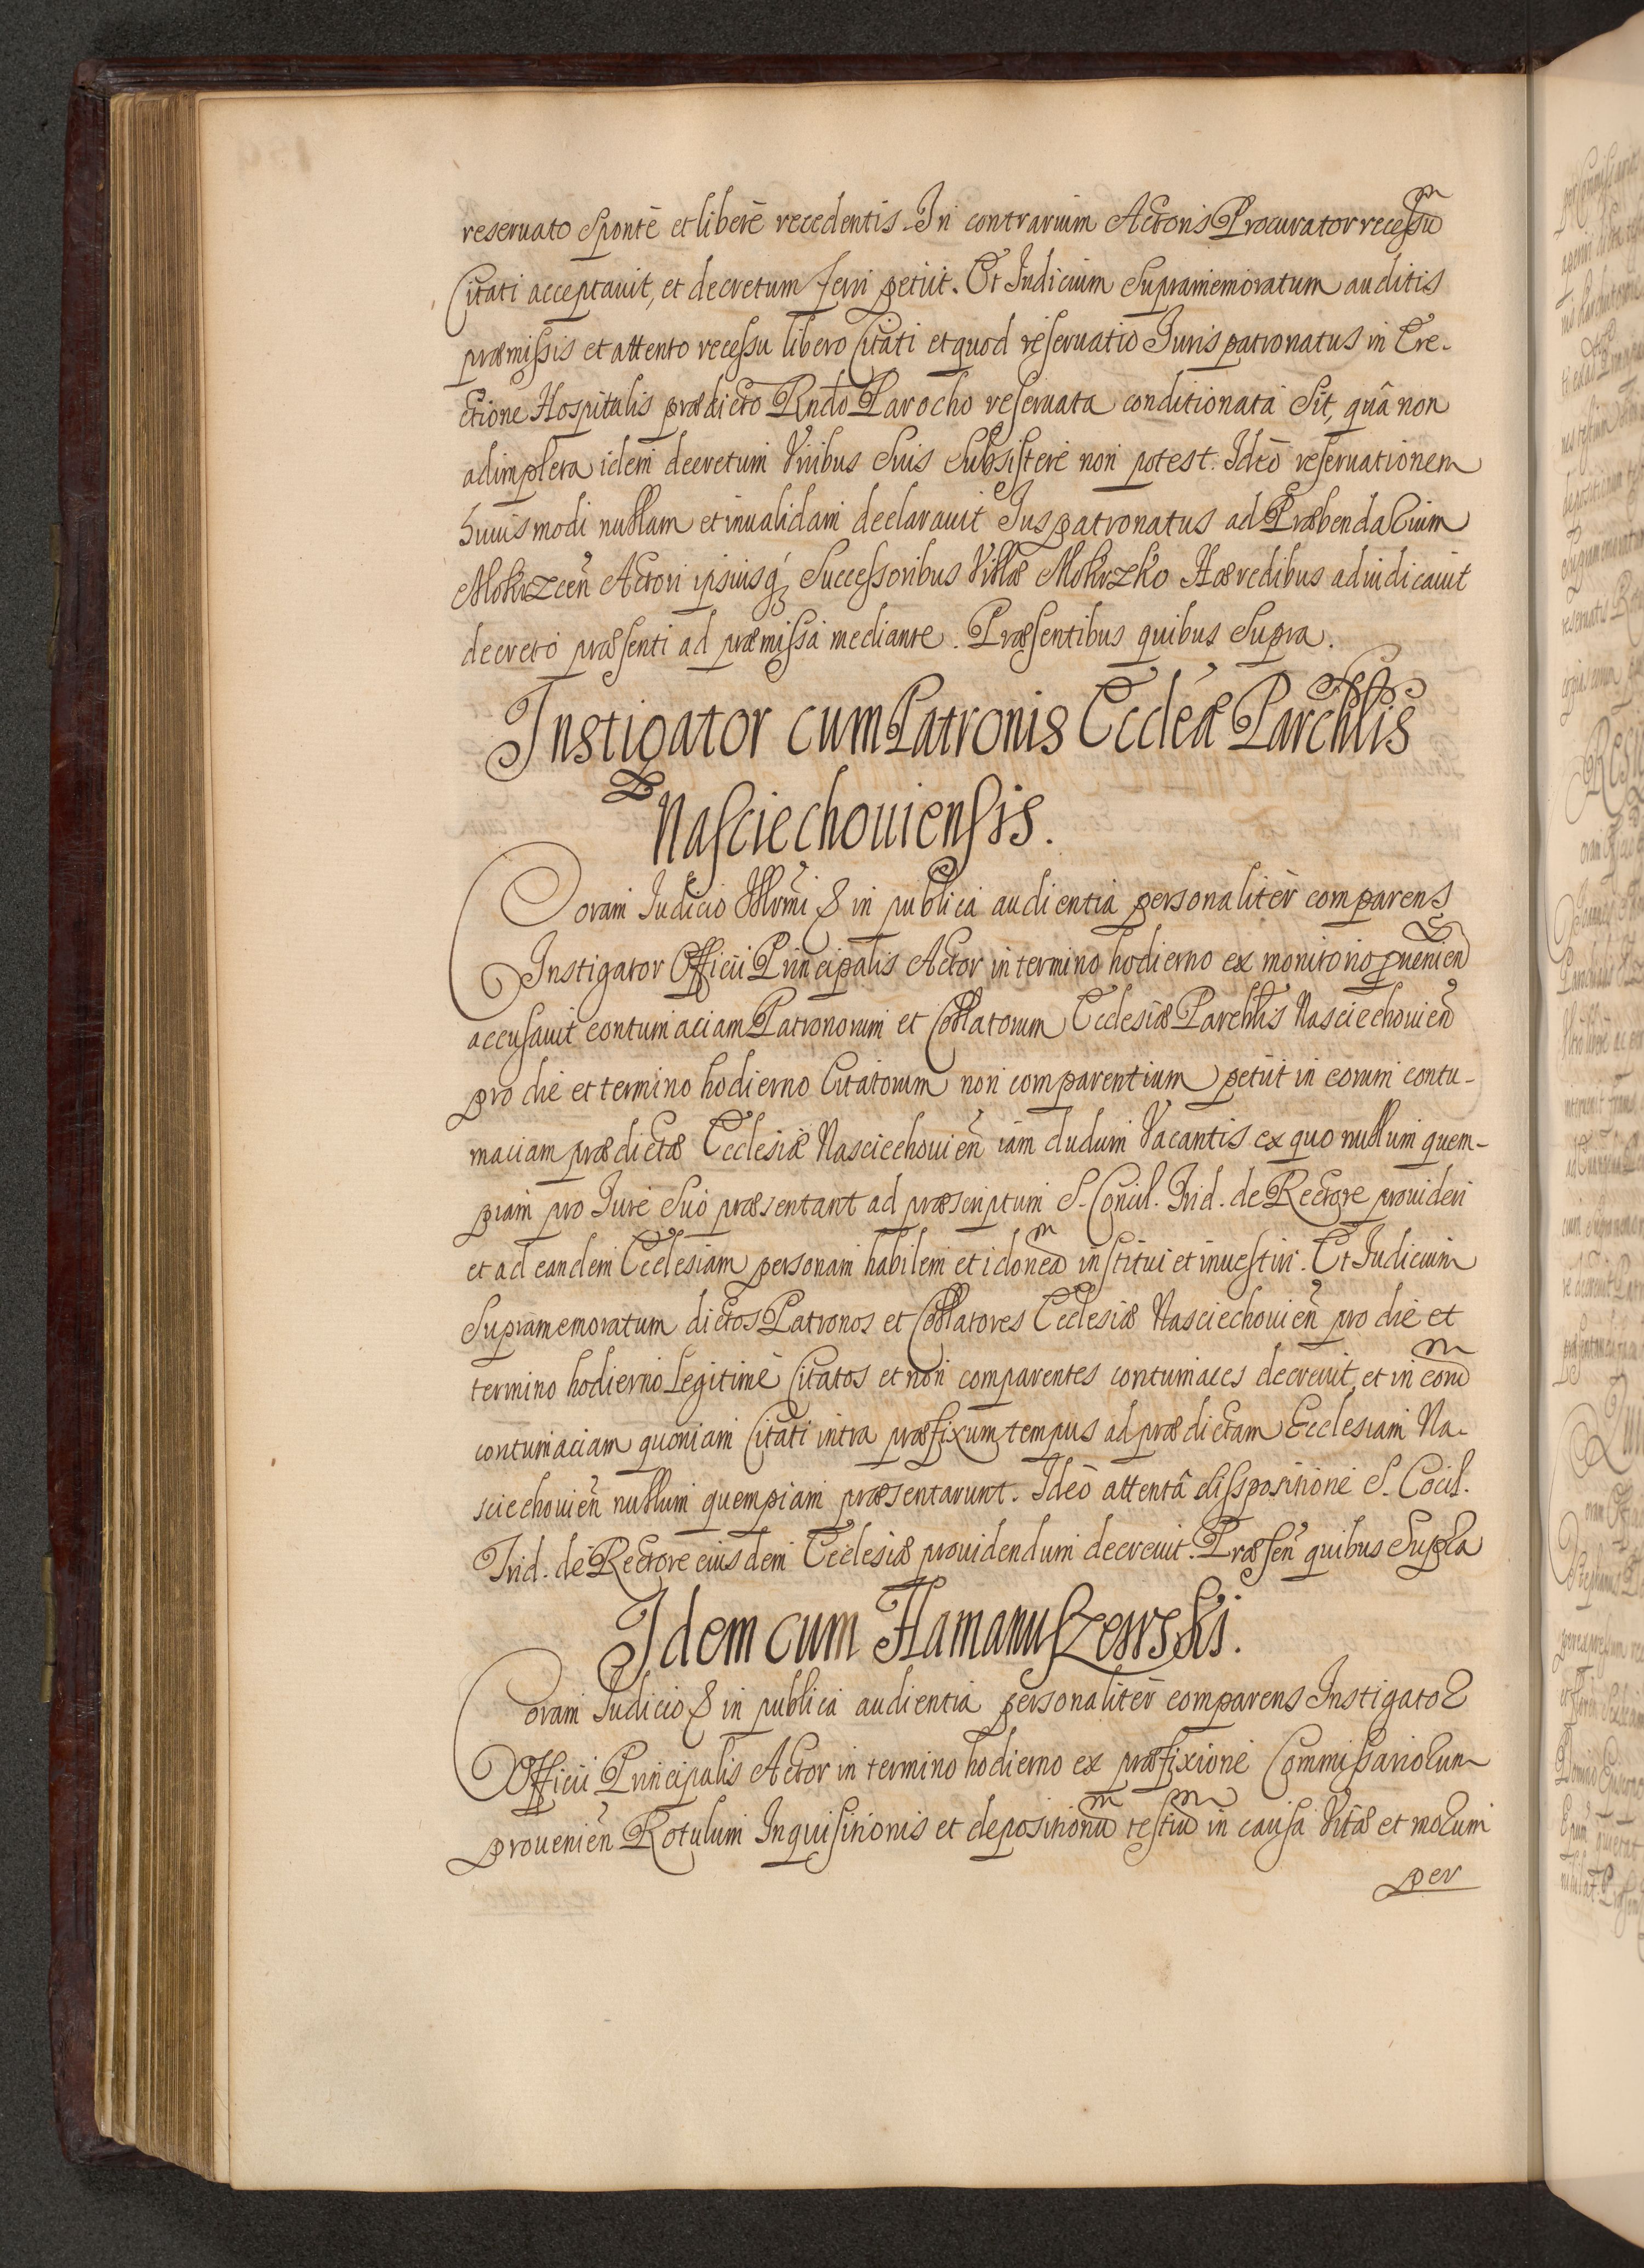 reseruato sponte et libere recedentis. In contrarium Actoris Procurator recessum
Citati acceptauit, et decretum ferri petiit. Et Iudicium supramemoratum auditis
præmissis et attento recessu libero Citati et quod reseruatio Iuris patronatus in Ere-
ctione Hospitalis prædicto Rndo Parocho reseruata conditionata sit, quâ non
adimpleta idem decretum Viribus suis subsistere non potest. Ideo reseruationem
huiusmodi nullam et inualidam declarauit Ius patronatus ad Præbendarium
Mokrzcen̄ Actori ipsiusq́ȝ Successoribus Villæ Mokrzko Hæredibus adiudicauit
decreto præsenti ad præmissa mediante. Præsentibus quibus supra.
Instigator cum Patronis Ecclēæ Parchlis
Nasciechouiensis.
Coram Iudicio Illrmi & in publica audientia personaliter comparens
Instigator Officii Principalis Actor in termino hodierno ex monitorio prouenien̄
accusauit contumaciam Patronorum et Collatorum Ecclesiæ Parchlis Nasciechouien̄
pro die et termino hodierno Citatorum non comparentium petiit in eorum contu-
maciam prædictæ Ecclesiæ Nasciechouien̄ iam dudum Vacantis ex quo nullum quem-
piam pro Iure suo præsentant ad præscriptum S. Concil. Trid. de Rectore prouideri
et ad eandem Ecclesiam personam habilem et idoneam institui et inuestiri. Et Iudicium
Supramemoratum dictos Patronos et Collatores Ecclesiæ Nasciechouien̄ pro die et
termino hodierno Legitime Citatos et non comparentes contumaces decreuit, et in eorum
contumaciam quoniam Citati intra præfixum tempus ad prædictam Ecclesiam Na-
sciechouien̄ nullum quempiam præsentarunt. Ideo attentâ dispositione S. Cocil.
Trid. de Rectore eiusdem Ecclesiæ prouidendum decreuit. Præsen̄ quibus supra
Idem cum Hamanuszewski.
Coram Iudicio & in publica audientia personaliter comparens Instigator
Officii Principalis Actor in termino hodierno ex præfixione Commissariorum
prouenien̄ Rotulum Inquisitionis et depositionum testium in causa Vitæ et morum
per